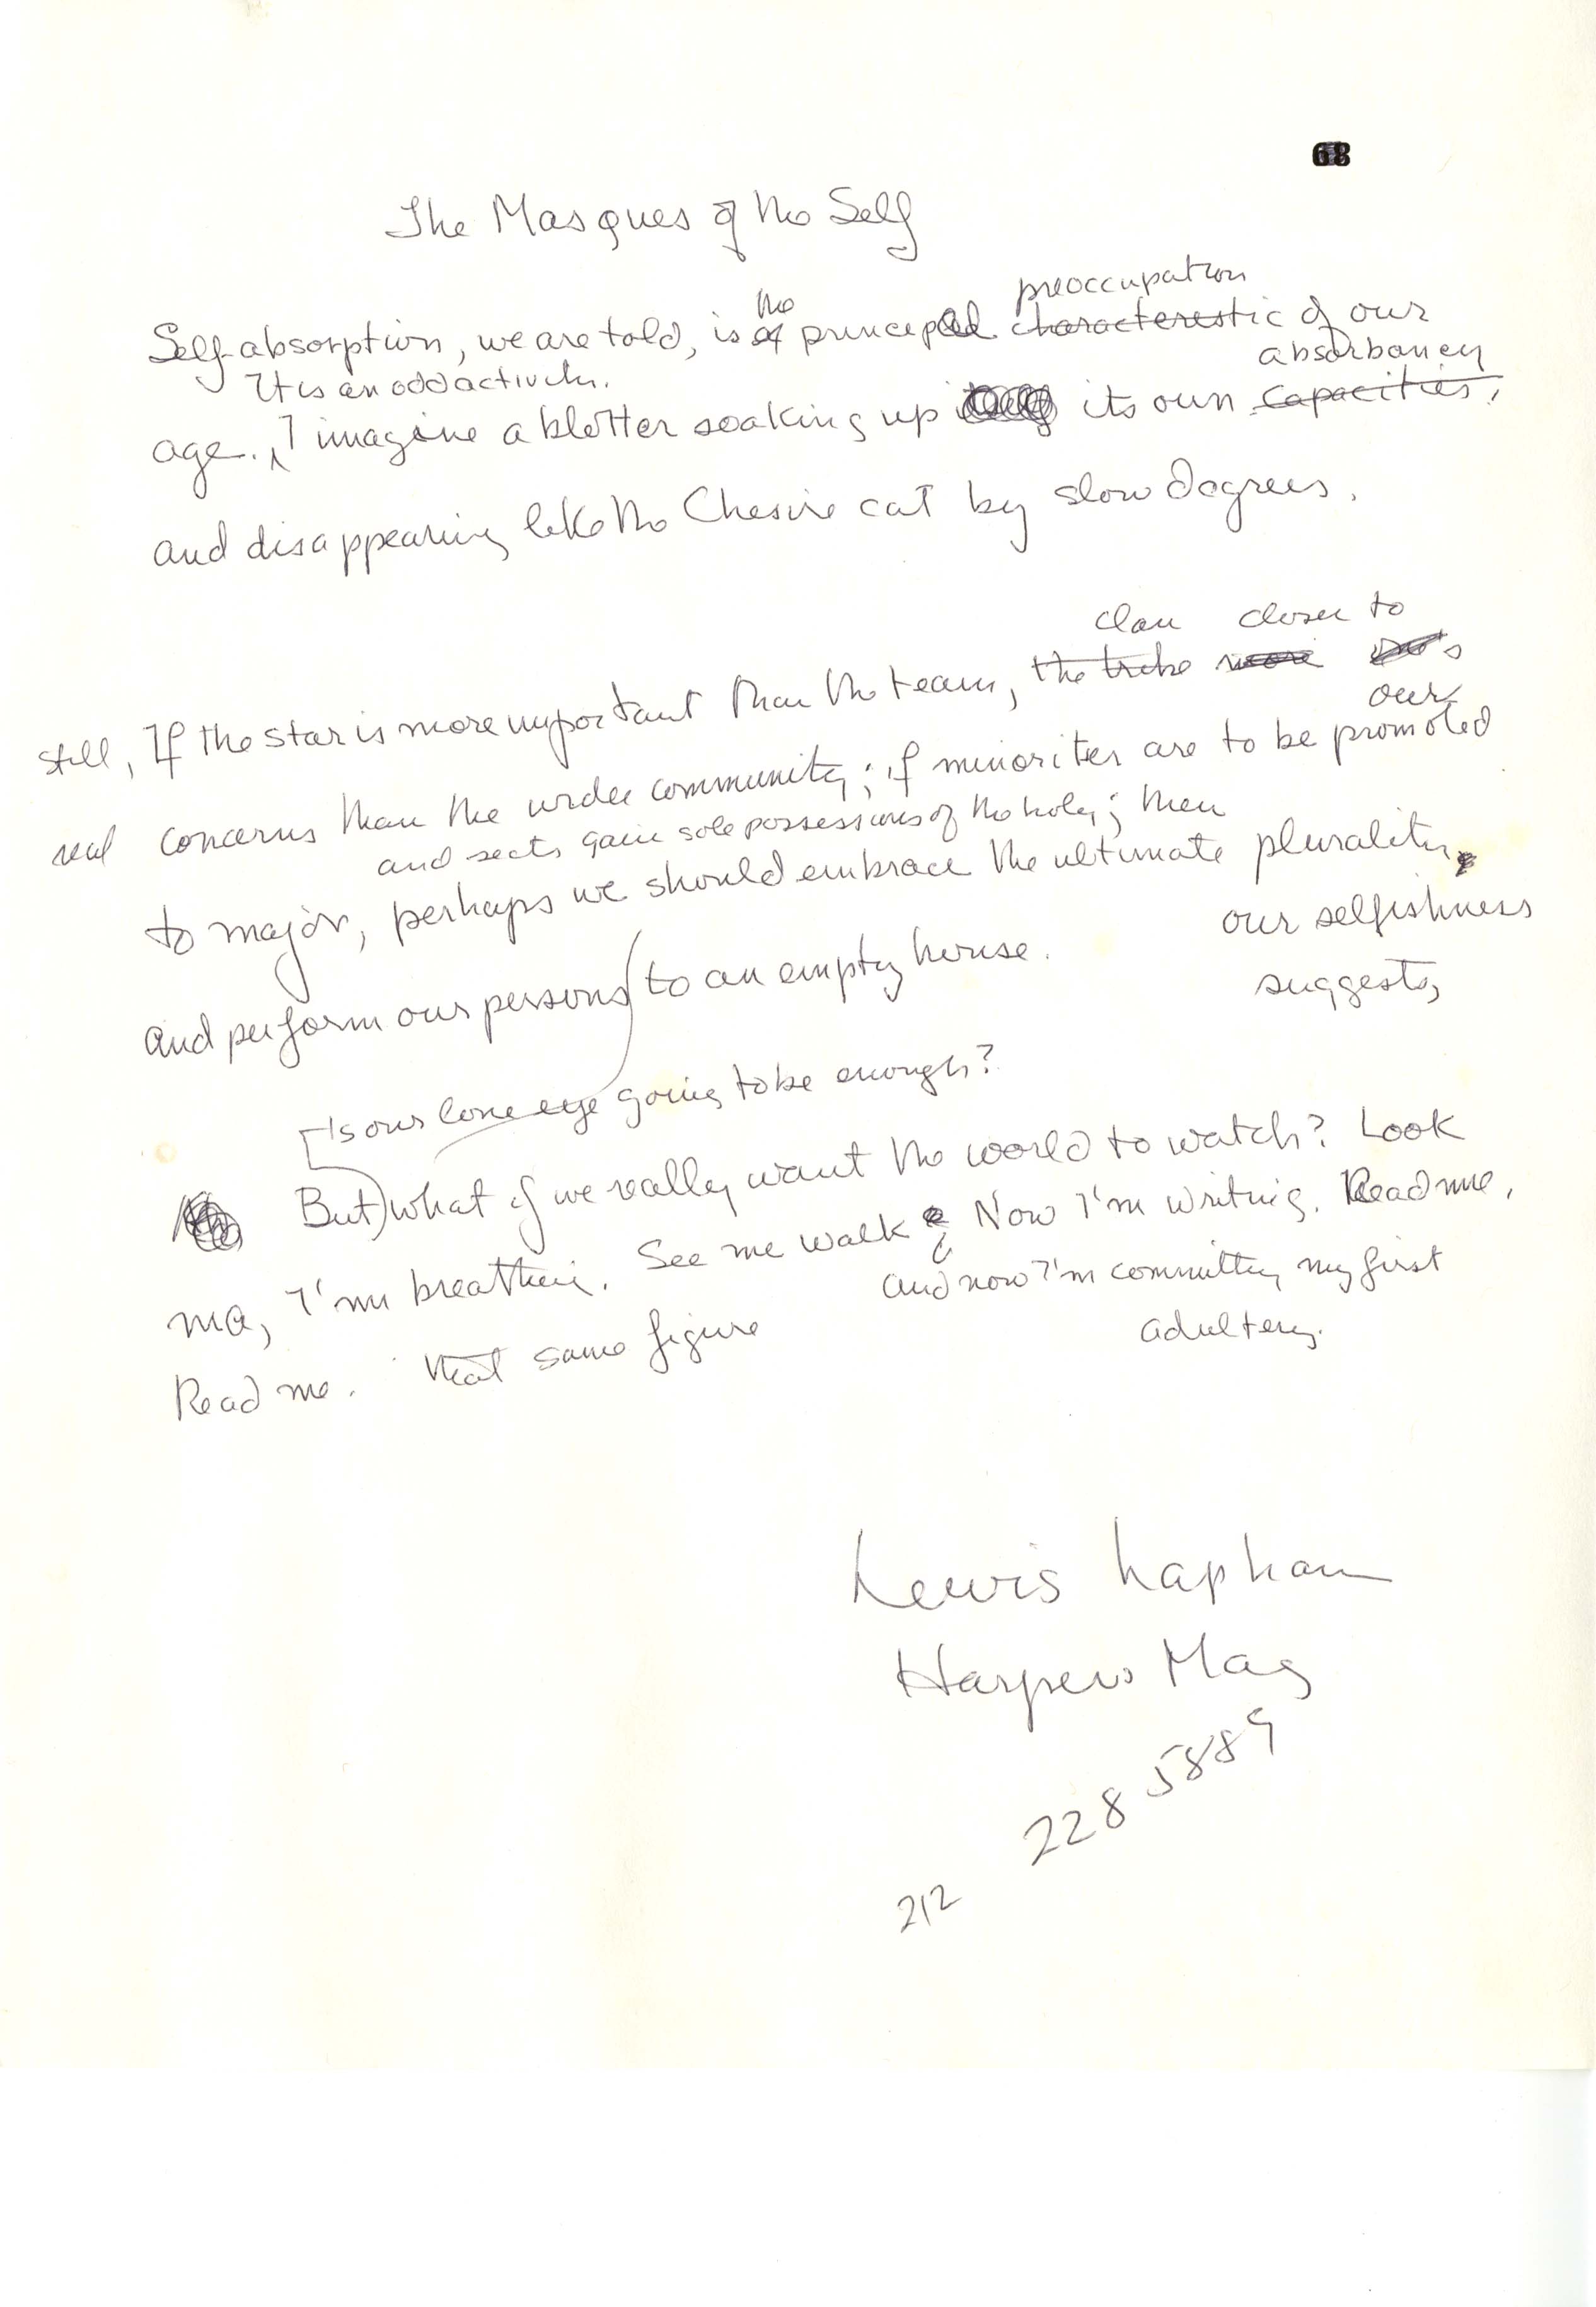 68
The Masques of the Self
the preoccupation
Self-absorption, we are told, is a principal characteristic of our
It is an odd activity. absorbancy
age. I imagine a blotter soaking up its own capacities,
and disappearing like the Chesire cat by slow degrees.
clan closer to
Still, If the star is more important than the team, the tribe more
our
real concerns than the wider community; if minorities are to be promoted
and sects gain sole possessions of the holy; then
to major, perhaps we should embrace the ultimate plurality
our selfishness
suggests,
and perform our persons to an empty house.
Is our lone eye going to be enough?
But what if we really want the world to watch? Look
ma, I'm breathing. See me walk. Now I'm writing. Read me,
and now I'm committing my first
adultery.
Read me. that same figure
Lewis Lapham
Harpers Mag
228 5889
212